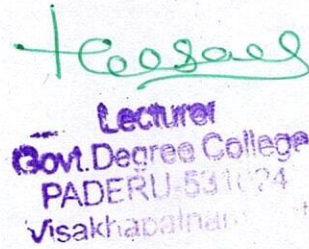 Lecturer
Govt.Degree College
PADERU-531024
Visakhapatnam